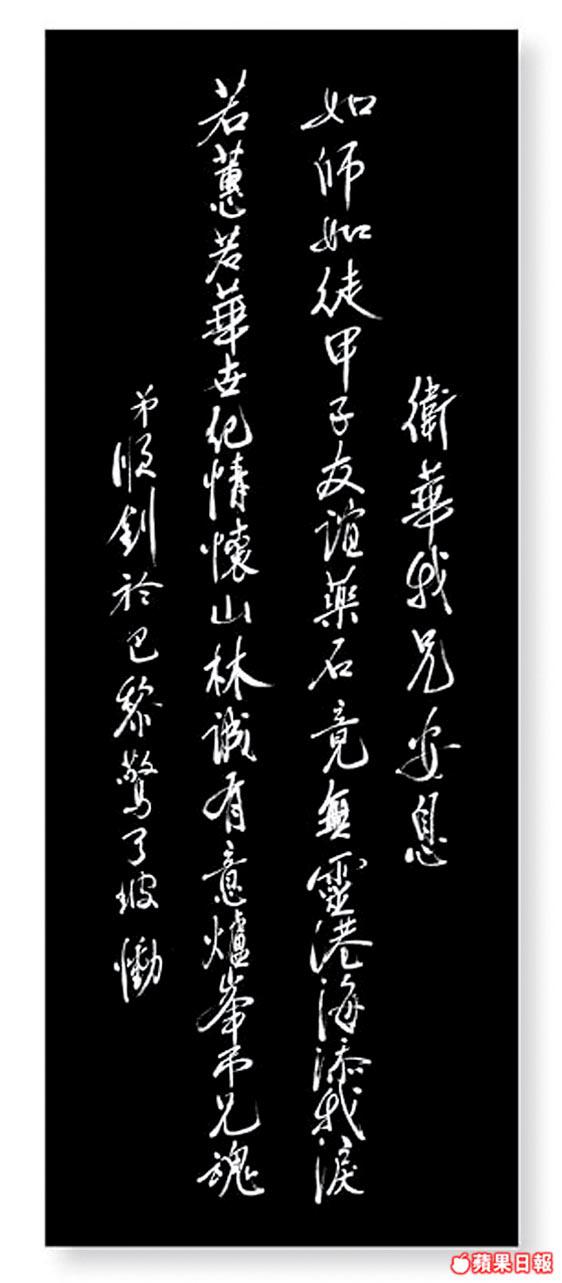 衛華我兄安息
如師如徒甲子友誼藥石竟無靈港海添我淚
若蕙若華世紀情懷山林誠有意爐峯弔兄魂
弟順釗於巴黎驚了坡慟
蘋果日報